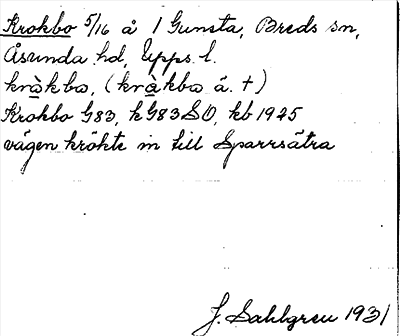 Krokbo 5/16 å 1 Gunsta, Breds sn,
Åsunda hd, Upps. l.
krὰkbω, (krὰkbω ä. †)
Krokbo G83, kG83SO, kb 1945
vägen krökte in till Sparrsätra
J. Sahlgren 1931